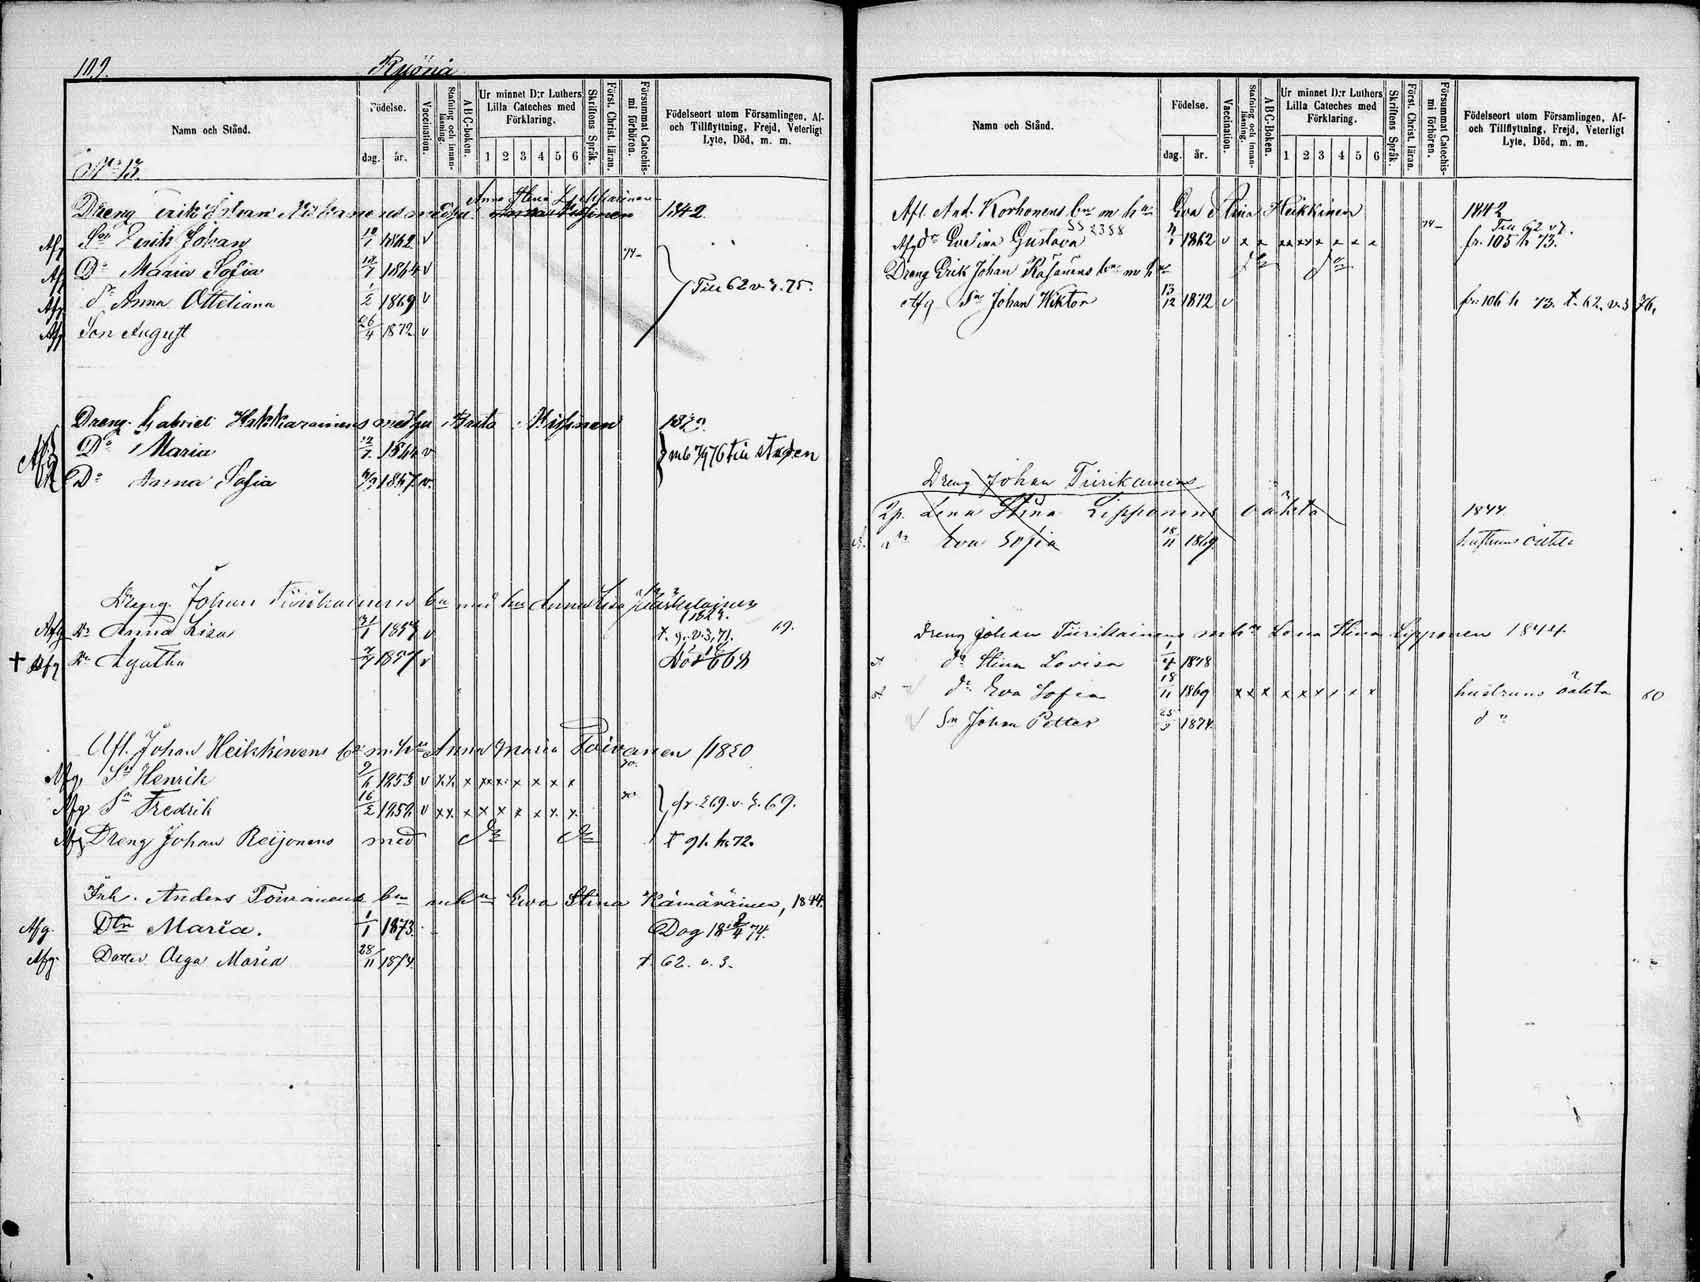 109. Ryönä
Namn och Stånd.
Födelse.
dag. år.
Vaccination.
Stafning och innanläsning.
ABC-boken.
Ur minnet D:r Luthers Lilla Cateches med Förklaring.
1 2 3 4 5 6
Skriftens Språk.
Först. Christ. läran.
Försummat Catechismi förhören.
Födelseort utom Församlingen, Af- och Tillflyttning, Frejd, Veterligt Lyte, Död, m. m.
No 13.
Dreng Erik Johan 1842
Afg Son Erik Johan 1862 v 74
Af Dr Maria Sofia 1864 v
Afg Dr Anna Ottiliana 1/2 1869 v Till 62 v. 3. 75.
Afg Son August 26/4 1872 v
Dreng Gabriel med hu Brita
Dr Maria 1864 v till staden
Dr Anna Sofia 1867 v.
Dreng Johan Tiirikainens bn med hu Anna Lisa
Afg Dr Anna Lisa 1859 v t. 91. v. 3. 71.
† Afg Dr Agatha 1857 v Död
Afl. Johan Heikkinens bn m hu Anna Maria Toivanen /1820
Afg Sn Henrik 1853 v x x x x x x x x x x 70.
Afg Sn Fredrik 16/2 1858 v x x x x x x x x x 70. fr. 269. v. 3. 69.
Afg Dreng Johan Reijonens med do do t 91. h. 72.
Inh. Anders Toivanens bn m hu Ewa Stina Hämäräinen, 1844
Afg. Dtr Maria. 1/1 1873. Dog 18 2/4 74.
Afg. Dotter Olga Maria 28/11 1874. t. 62. v. 3.
Namn och Stånd.
Födelse.
dag. år.
Vaccination.
Stafning och innanläsning.
ABC-Boken.
Ur minnet D:r Luthers Lilla Cateches med Förklaring.
1 2 3 4 5 6
Skriftens Språk.
Först. Christ. läran.
Försummat Catechismi förhören.
Födelseort utom Församlingen, Af- och Tillflyttning, Frejd, Veterligt Lyte, Död, m. m.
Afl. And. Korhonens bn m hu Eva Stina Heikkinen 1842
SS 2388
Till 62 v 7.
Afg dr Evelina Gustava 1862 v x x x x x x x x x 74 fr. 105 h 73.
Dreng Erik Johan Räsänens bn m hu do do
Afg Sn Johan Wiktor 13/12 1872 v fr. 106 h 73. t. 62. v. 3 76.
Dreng Johan Tiirikainens
Lena Stina Lipponens oäkta 1844
dr Eva Sofia 18/11 1869 hustruns oäkta
Dreng Johan Tiirikainens m hu Lena Stina Lipponen 1844.
dr Stina Lovisa 1/4 1878
dr Eva Sofia 18/11 1869 x x x x x x x x x hustruns oäkta 60
Sn Johan Petter 25/3 1874. do